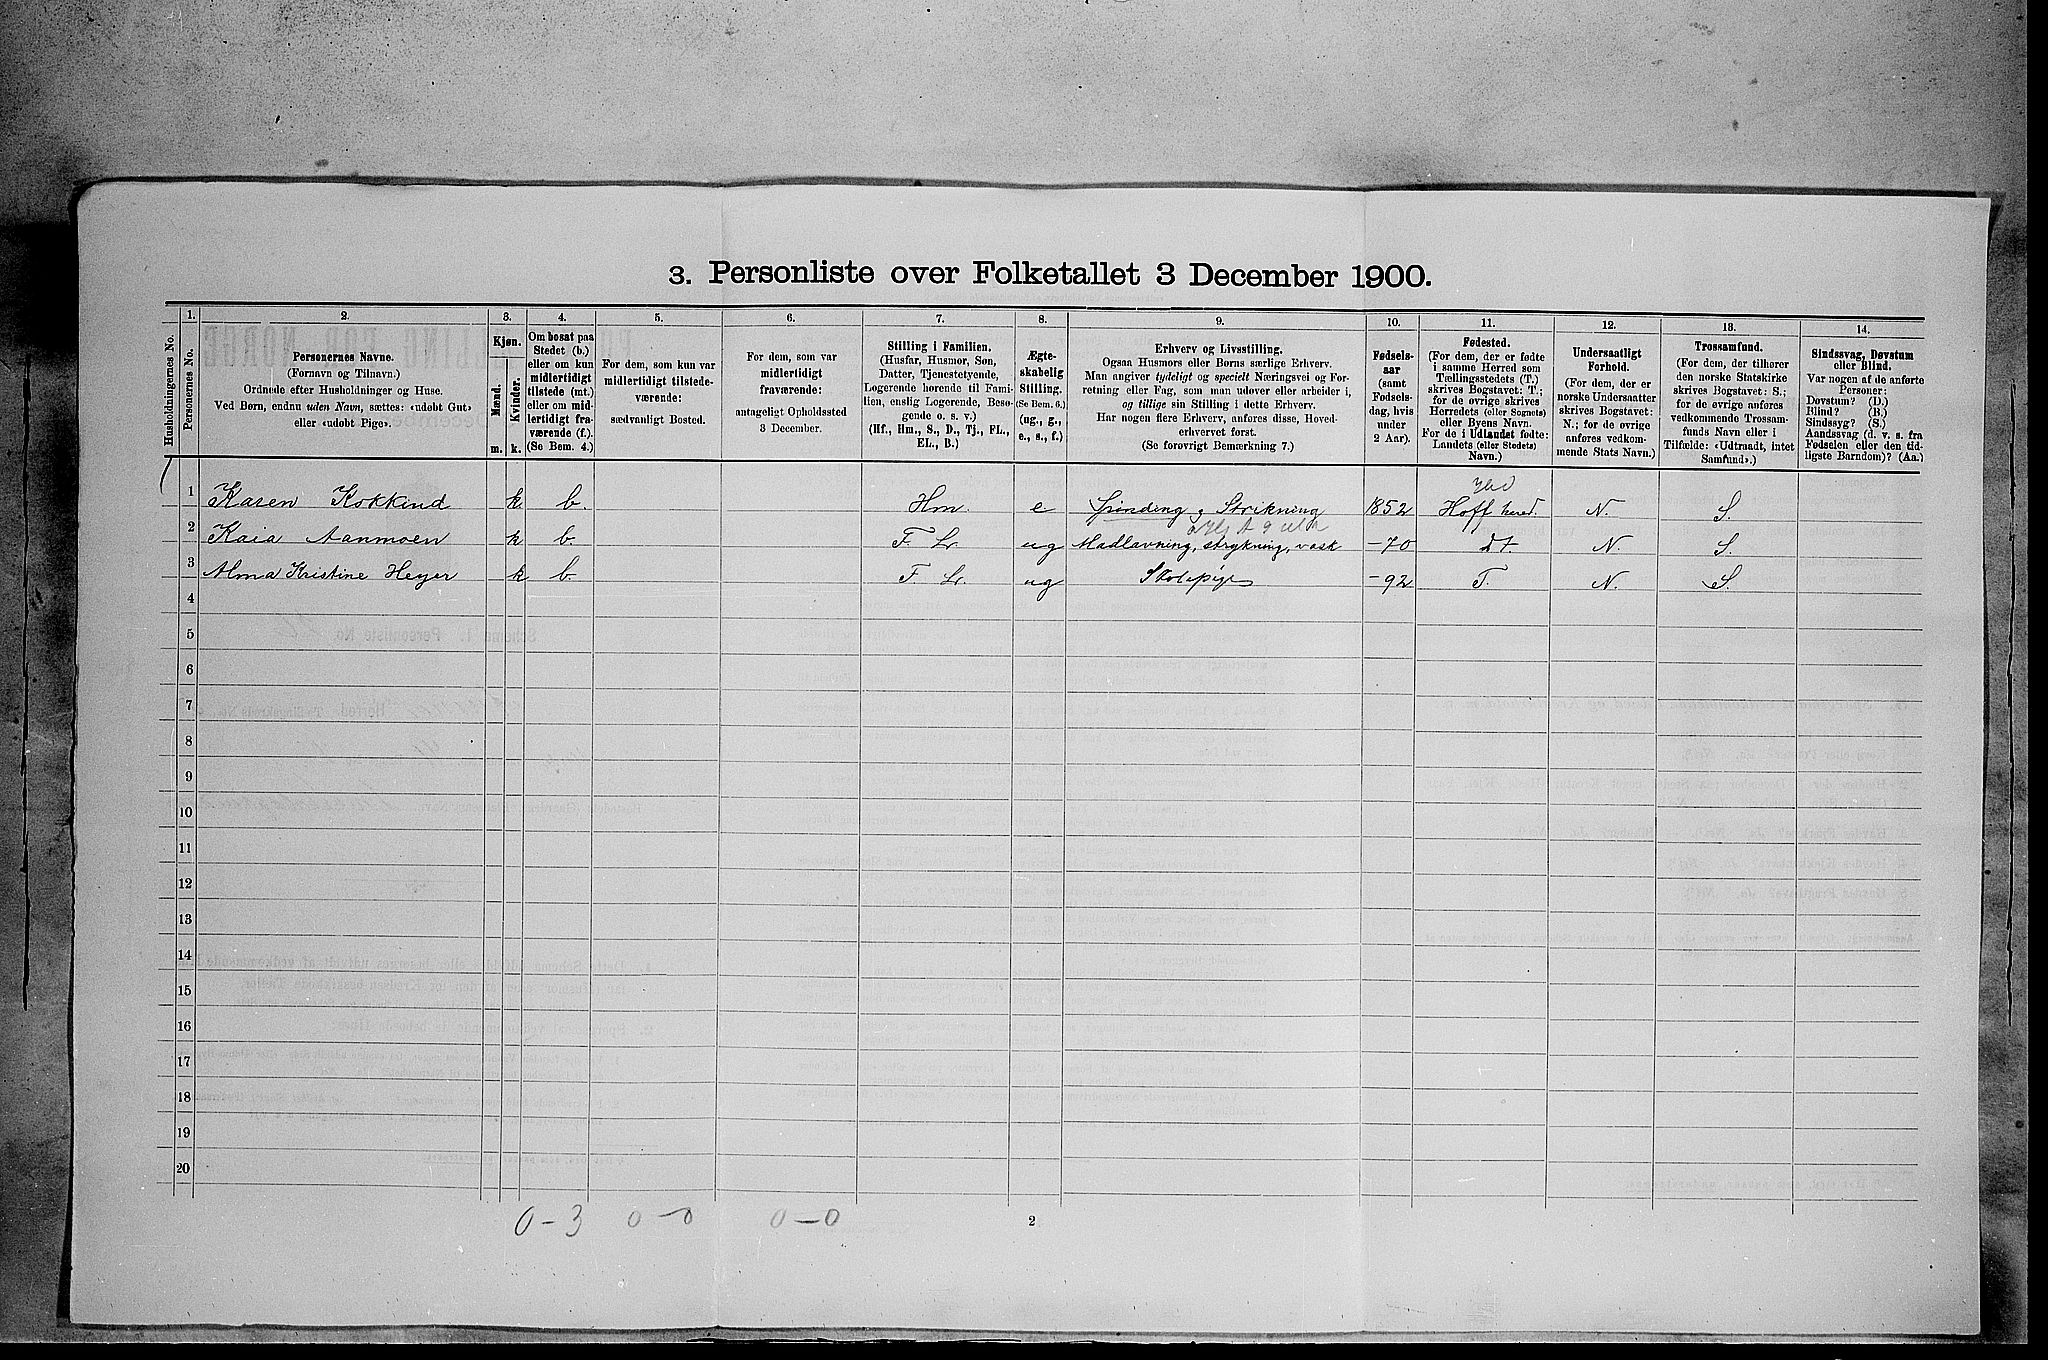 3. Personliste over Folketallet 3 December 1900.
1. 2. 3. 4. 5. 6. 7. 8. 9. 10. 11. 12. 13. 14.
Husholdningernes No.
Personernes No.
Personernes Navne.
(Fornavn og Tilnavn.)
Ordnede efter Husholdninger og Huse.
Ved Børn, endnu uden Navn, sættes: «udøbt Gut»
eller «udøbt Pige».
Kjøn.
Mænd.
Kvinder.
m. k.
Om bosat paa
Stedet (b.)
eller om kun
midlertidigt
tilstede (mt.)
eller om mid-
lertidigt fra-
værende (f.).
(Se Bem. 4.)
For dem, som kun var
midlertidigt tilstede-
værende:
sædvanligt Bosted.
For dem, som var
midlertidigt
fraværende:
antageligt Opholdssted
3 December.
Stilling i Familien.
(Husfar, Husmor, Søn,
Datter, Tjenestetyende,
Logerende hørende til Fami-
lien, enslig Logerende, Besø-
gende o. s. v.)
(Hf., Hm., S., D., Tj., FL.,
EL., B.)
Ægte-
skabelig
Stilling.
(Se Bem. 6.)
(ug., g.,
e., s., f.)
Erhverv og Livsstilling.
Ogsaa Husmors eller Børns særlige Erhverv.
Man angiver tydeligt og specielt Næringsvei og For-
retning eller Fag, som man udøver eller arbeider i,
og tillige sin Stilling i dette Erhverv.
Har nogen flere Erhverv, anføres disse, Hoved-
erhvervet først.
(Se forøvrigt Bemærkning 7.)
Fødsels-
aar
(samt
Fødsels-
dag, hvis
under
2 Aar).
Fødested.
(For dem, der er fødte
i samme Herred som
Tællingsstedets (T.)
skrives Bogstavet: T.;
for de øvrige skrives
Herredets (eller Sognets)
eller Byens Navn.
For de i Udlandet fødte:
Landets (eller Stedets)
Navn.)
Undersaatligt
Forhold.
(For dem, der er
norske Undersaatter
skrives Bogstavet:
N.; for de øvrige
anføres vedkom-
mende Stats Navn.)
Trossamfund.
(For dem, der tilhører
den norske Statskirke
skrives Bogstavet: S.;
for de øvrige anføres
vedkommende Trossam-
funds Navn eller i
Tilfælde: «Udtraadt, intet
Samfund».)
Sindssvag, Døvstum
eller Blind.
Var nogen af de anførte
Personer:
Døvstum? (D.)
Blind? (B.)
Sindssyg? (S.)
Aandssvag (d. v. s. fra
Fødselen eller den tid-
ligste Barndom)? (Aa.)
1 Karen Kokkind k b. Hm. e Spinding og Strikning 1852 Hoff herred. N. S.
2 Kaia Aanmoen k b. F. L. ug Madlavning, strykning, vask -70 dt N. S.
3 Alma Kristine Heyer k b. F L. ug Skolepige -92 T. N. S.
4
5
6
7
8
9
10
11
12
13
14
15
16
17
18
19
20
0-3 0-0 0-0 2